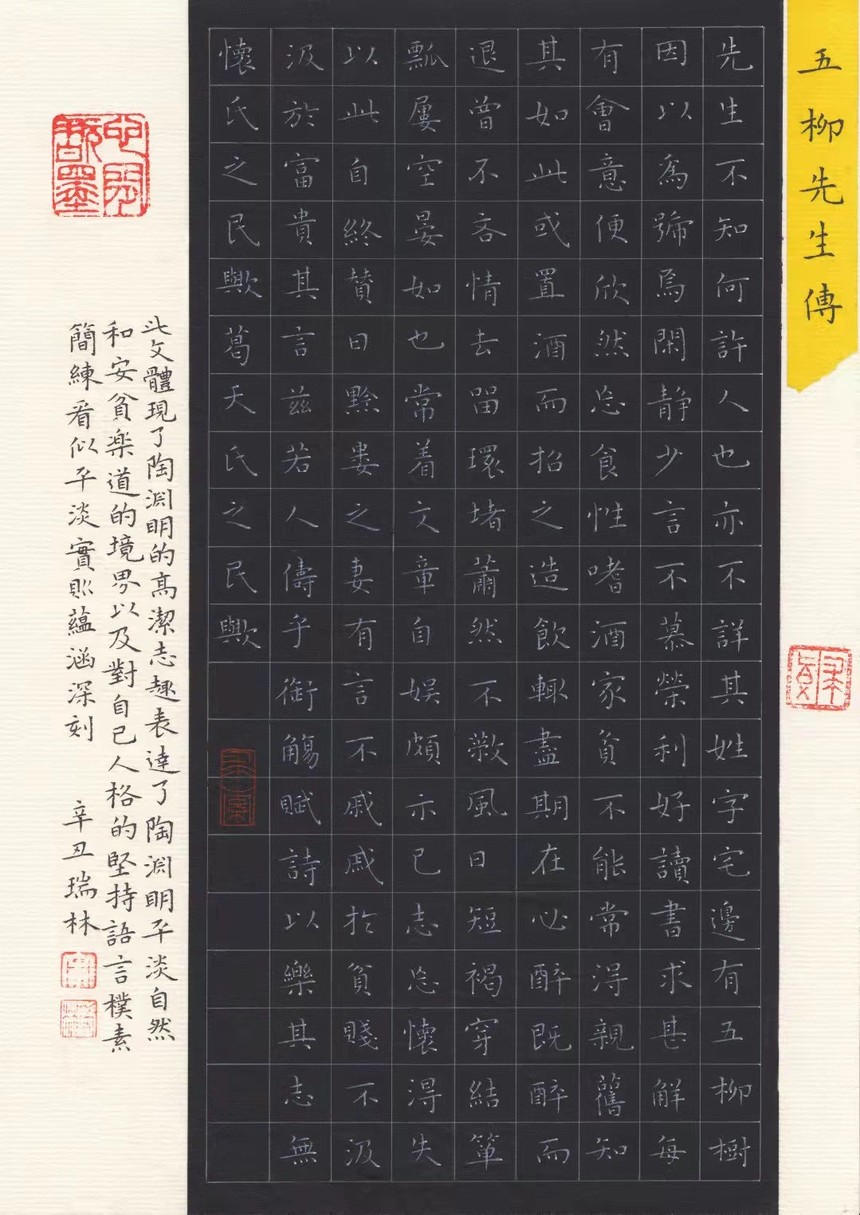 五柳先生傳
先生不知何許人也亦不詳其姓字宅邊有五柳樹
因以爲號焉閑静少言不慕榮利好讀書求甚解每
有會意便欣然忘食性嗜酒家貧不能常得親舊知
其如此或置酒而招之造飲輒盡期在必醉既醉而
退曾不吝情去留環堵蕭然不蔽風日短褐穿結簞
瓢屢空晏如也常着文章自娛頗示已志忘懷得失
以此自終贊曰黔婁之妻有言不戚戚於貧賤不汲
汲於富貴其言兹若人儔乎銜觴賦詩以樂其志無
懷氏之民歟葛天氏之民歟
此文體現了陶淵明的高潔志趣表達了陶淵明平淡自然
和安貧樂道的境界以及對自己人格的堅持語言樸素
簡練看似平淡實則蘊涵深刻 辛丑瑞林